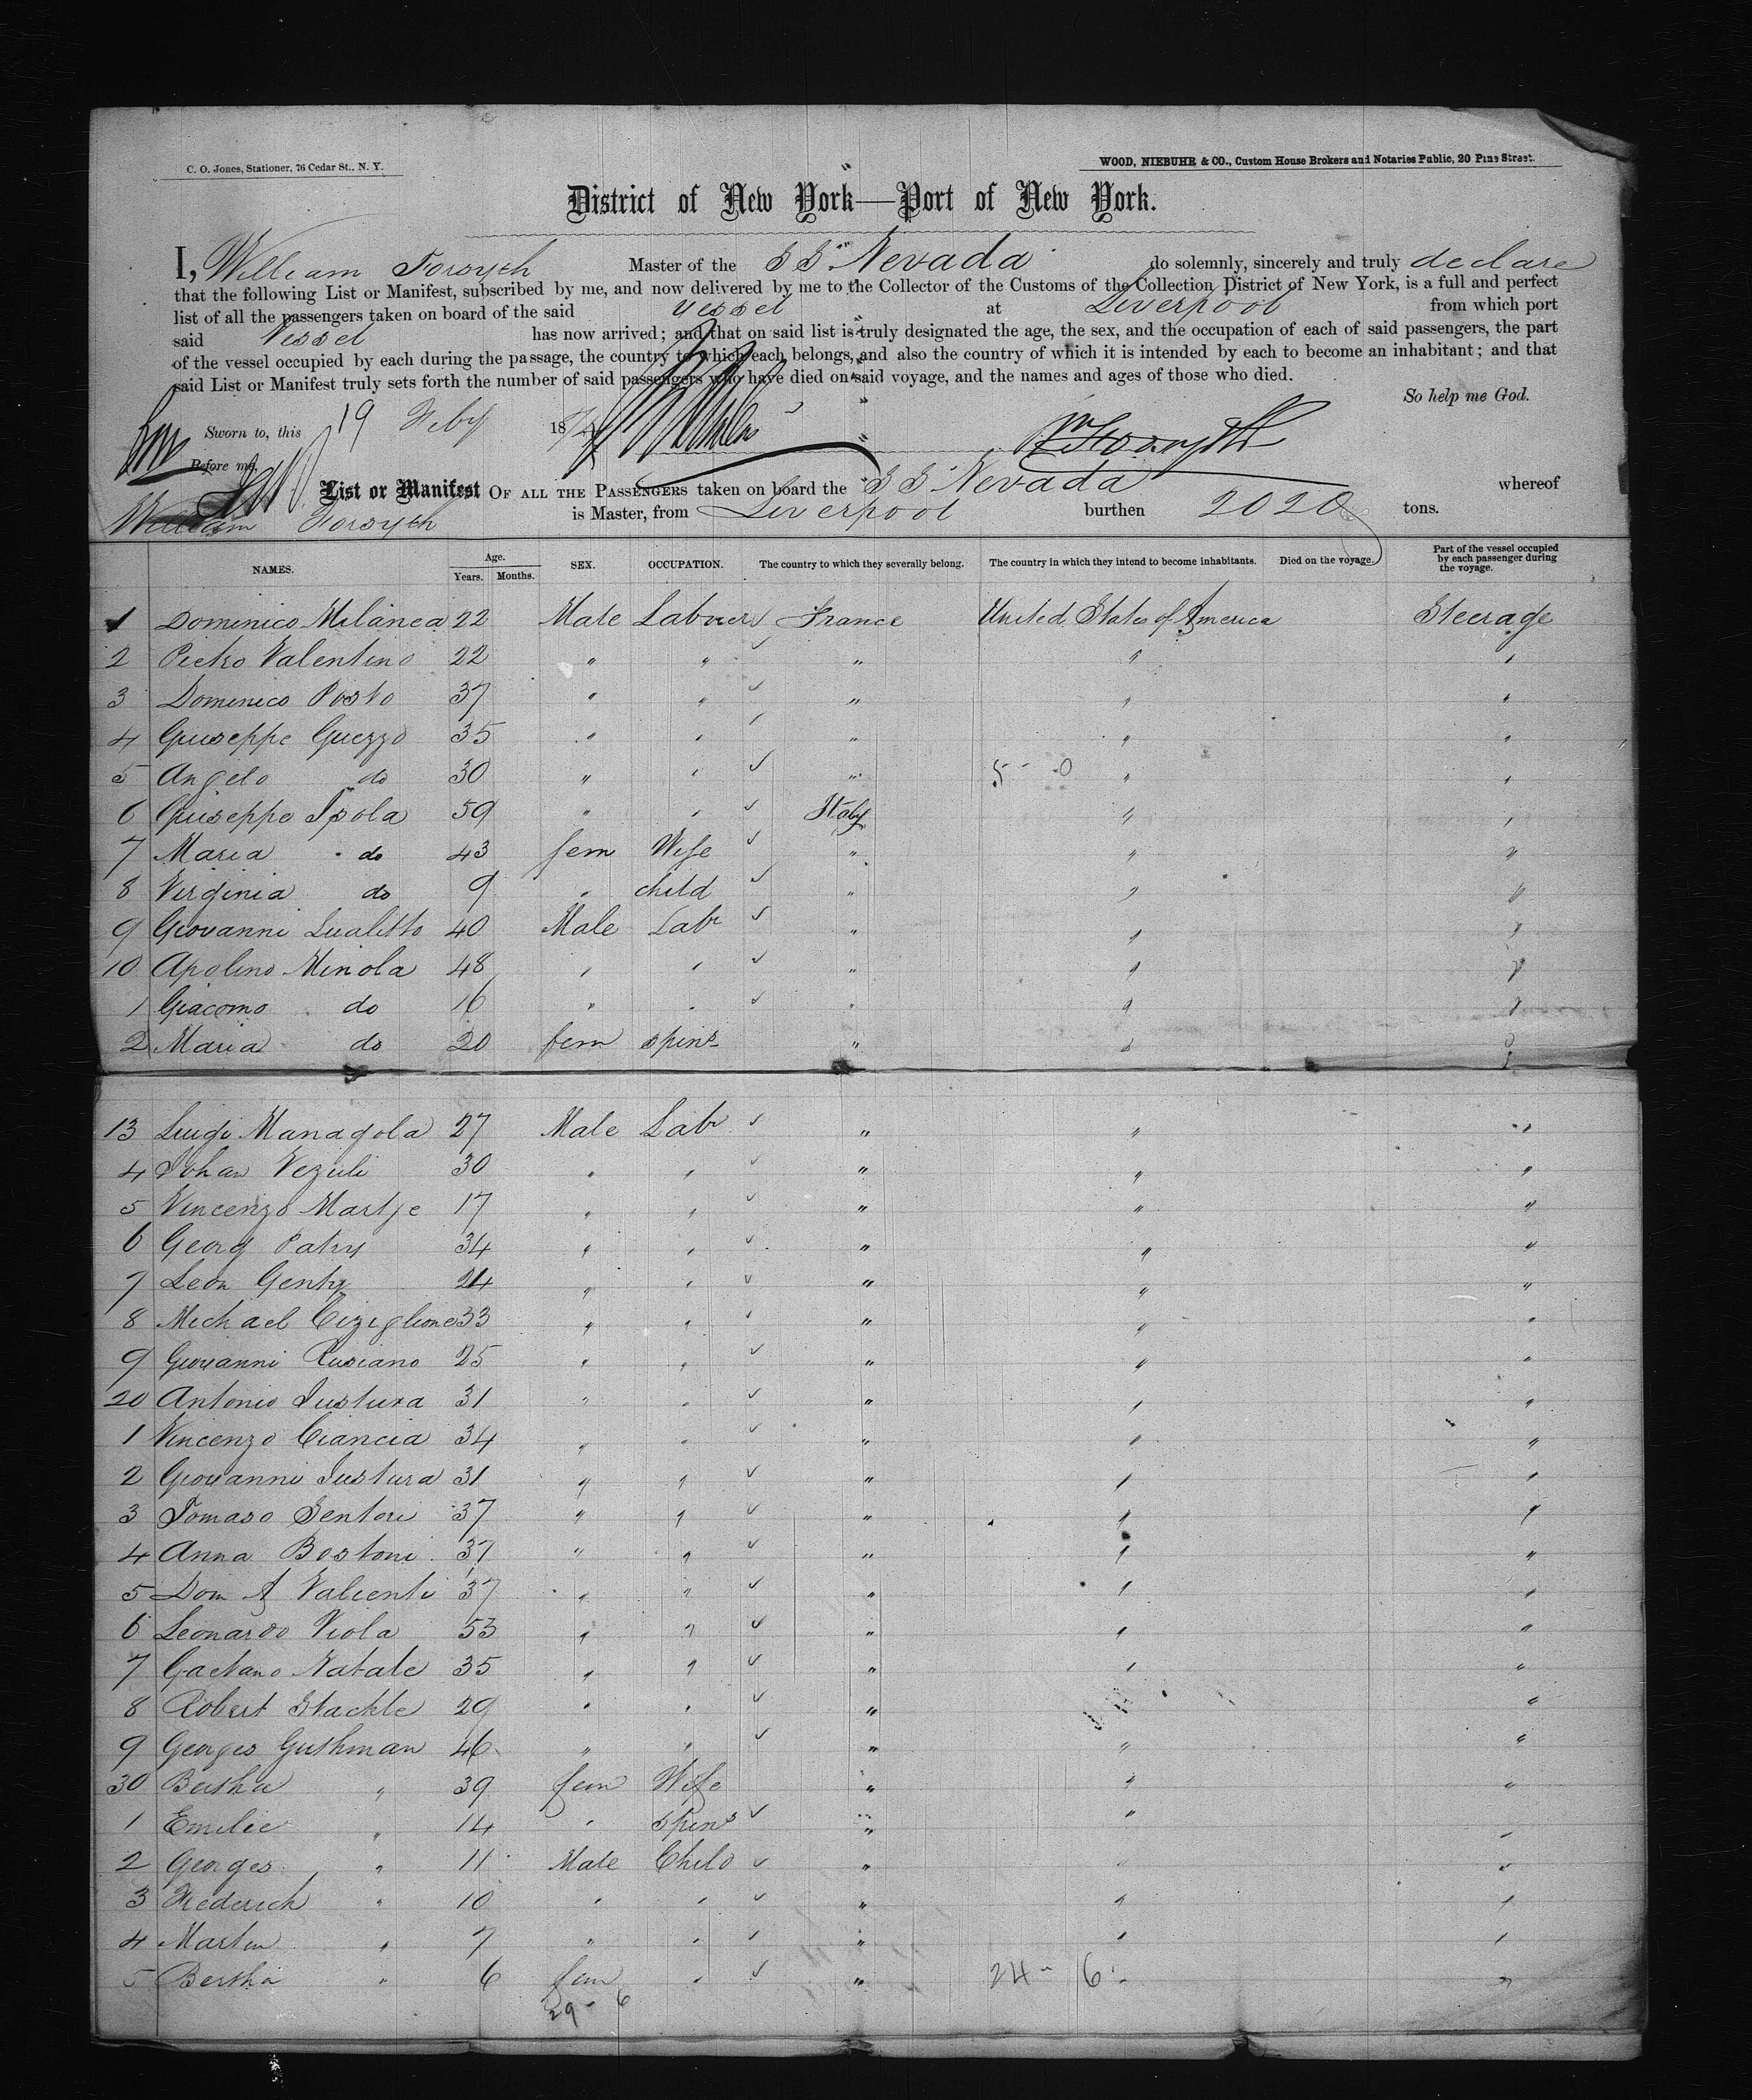 C. O. Jones, Stationer, 76 Cedar St., N. Y.
WOOD, NIEBUHR & CO., Custom House Brokers and Notaries Public, 20 Pine Street.
District of New York—Port of New York.
I, William Forsyth Master of the SS "Nevada do solemnly, sincerely and truly declare
that the following List or Manifest, subscribed by me, and now delivered by me to the Collector of the Customs of the Collection District of New York, is a full and perfect
list of all the passengers taken on board of the said Vessel at Liverpool from which port
said Vessel has now arrived; and that on said list is truly designated the age, the sex, and the occupation of each of said passengers, the part
of the vessel occupied by each during the passage, the country to which each belongs, and also the country of which it is intended by each to become an inhabitant; and that
said List or Manifest truly sets forth the number of said passengers who have died on said voyage, and the names and ages of those who died.
So help me God.
Sworn to, this 19 Feby 187
Wm Forsyth
Before me,
List or Manifest OF ALL THE PASSENGERS taken on board the SS Nevada whereof
William Forsyth is Master, from Liverpool burthen 2020 tons.
NAMES. Age. Years. Months. SEX. OCCUPATION. The country to which they severally belong. The country in which they intend to become inhabitants. Died on the voyage. Part of the vessel occupied by each passenger during the voyage.
1 Dominico Milanea 22 Male Labourer France United States of America Steerage
2 Pietro Valentino 22 " " " " "
3 Domenico Posto 37 " " " " "
4 Giuseppe Guezzo 35 " " " " "
5 Angelo do 30 " " " 5 - 0 " "
6 Giuseppe Isola 59 " " Italy " "
7 Maria do 43 fem Wife " " "
8 Virginia do 9 " child " " "
9 Giovanni Lualitto 40 Male Labr " " "
10 Apolino Minola 48 " " " " "
1 Giacomo do 16 " " " " "
2 Maria do 20 fem spins " " "
13 Luigi Managola 27 Male Labr " " "
4 Johan Vezuli 30 " " " " "
5 Vincenzo Martje 17 " " " " "
6 Georg Patry 34 " " " " "
7 Leon Genty 24 " " " " "
8 Michael Ciziglione 33 " " " " "
9 Giovanni Rusiano 25 " " " " "
20 Antonio Justura 31 " " " " "
1 Vincenzo Ciancia 34 " " " " "
2 Giovanni Justura 31 " " " " "
3 Tomaso Sentori 37 " " " " "
4 Anna Bostoni 37 " " " " "
5 Dom A Valienti 37 " " " " "
6 Leonardo Viola 53 " " " " "
7 Gaetano Natale 35 " " " " "
8 Robert Stackle 29 " " " " "
9 Georges Gushman 46 " " " " "
30 Bertha " 39 fem Wife " " "
1 Emilie " 14 " spins " " "
2 Georges " 11 Male Child " " "
3 Frederich " 10 " " " " "
4 Martin " 7 " " " " "
5 Bertha " 6 fem " " 24 - 6 "
29 - 6